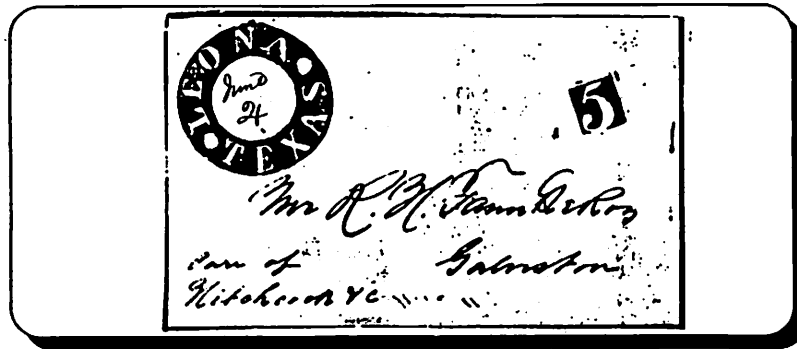 LEONA TEXAS
June
4
5
Mr R. H. Fauntleroy
Care of Galveston
Hitchcock & C